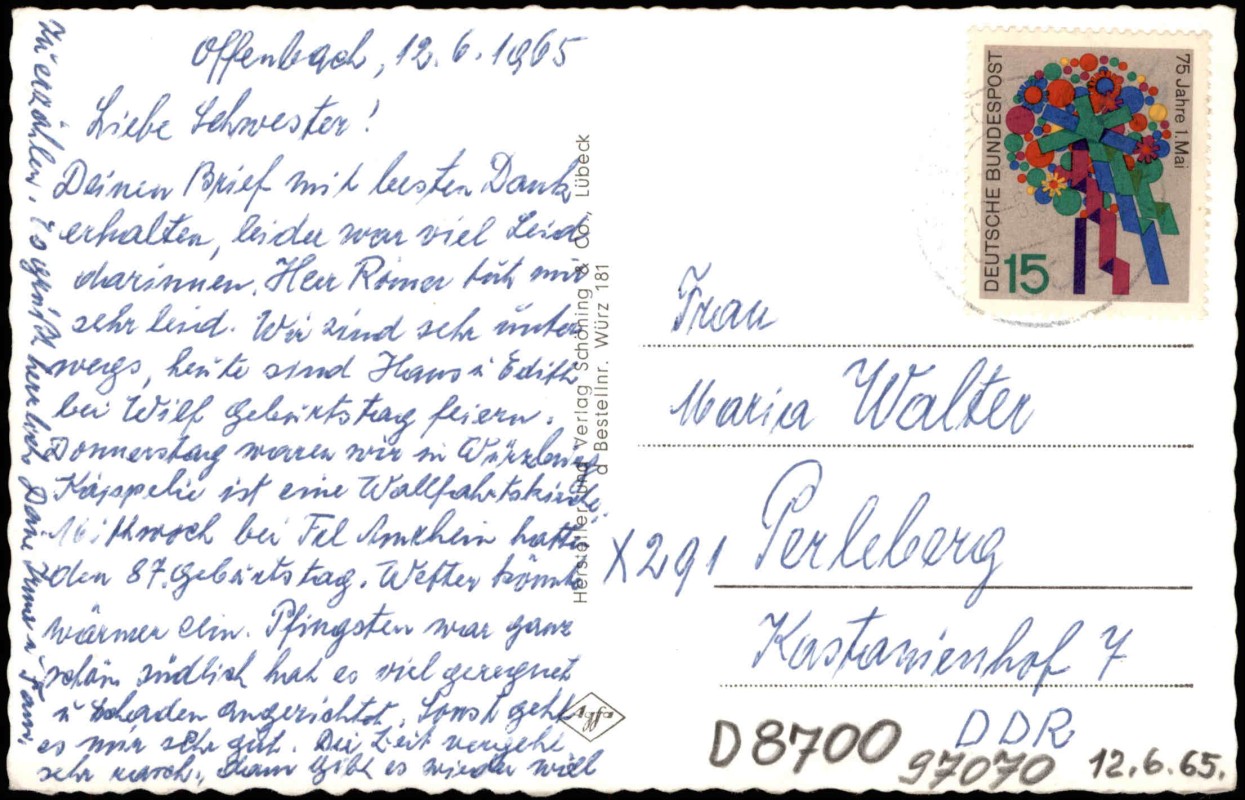 Offenbach, 12.6.1965
Liebe Schwester!
Deinen Brief mit besten Dank
erhalten, leider war viel Leid
darinnen. Herr Römer tut mir
sehr leid. Wir sind sehr unter
wegs, heute sind Hans u Edith
bei Wilf Geburtstag feiern.
Donnerstag waren wir in Würzburg
Käppelie ist eine Wallfahrtskirche
Mittwoch bei Frl Amrhein hatte
den 87. Geburtstag. Wetter könnte
wärmer sein. Pfingsten war ganz
schön südlich hat es viel geregnet
u Schaden angerichtet. Sonst geht
es mir sehr gut. Die Zeit vergeht
sehr rasch, dann gibt es wieder viel
zu erzählen. Es grüßt herzlich Deine u Fam.
Hersteller und Verlag Schöning & Co., Lübeck
d Bestellnr. Würz 181
Agfa
DEUTSCHE BUNDESPOST
15
75 Jahre 1. Mai
Frau
Maria Walter
X291 Perleberg
Kastanienhof 7
DDR
D8700
97070
12.6.65.